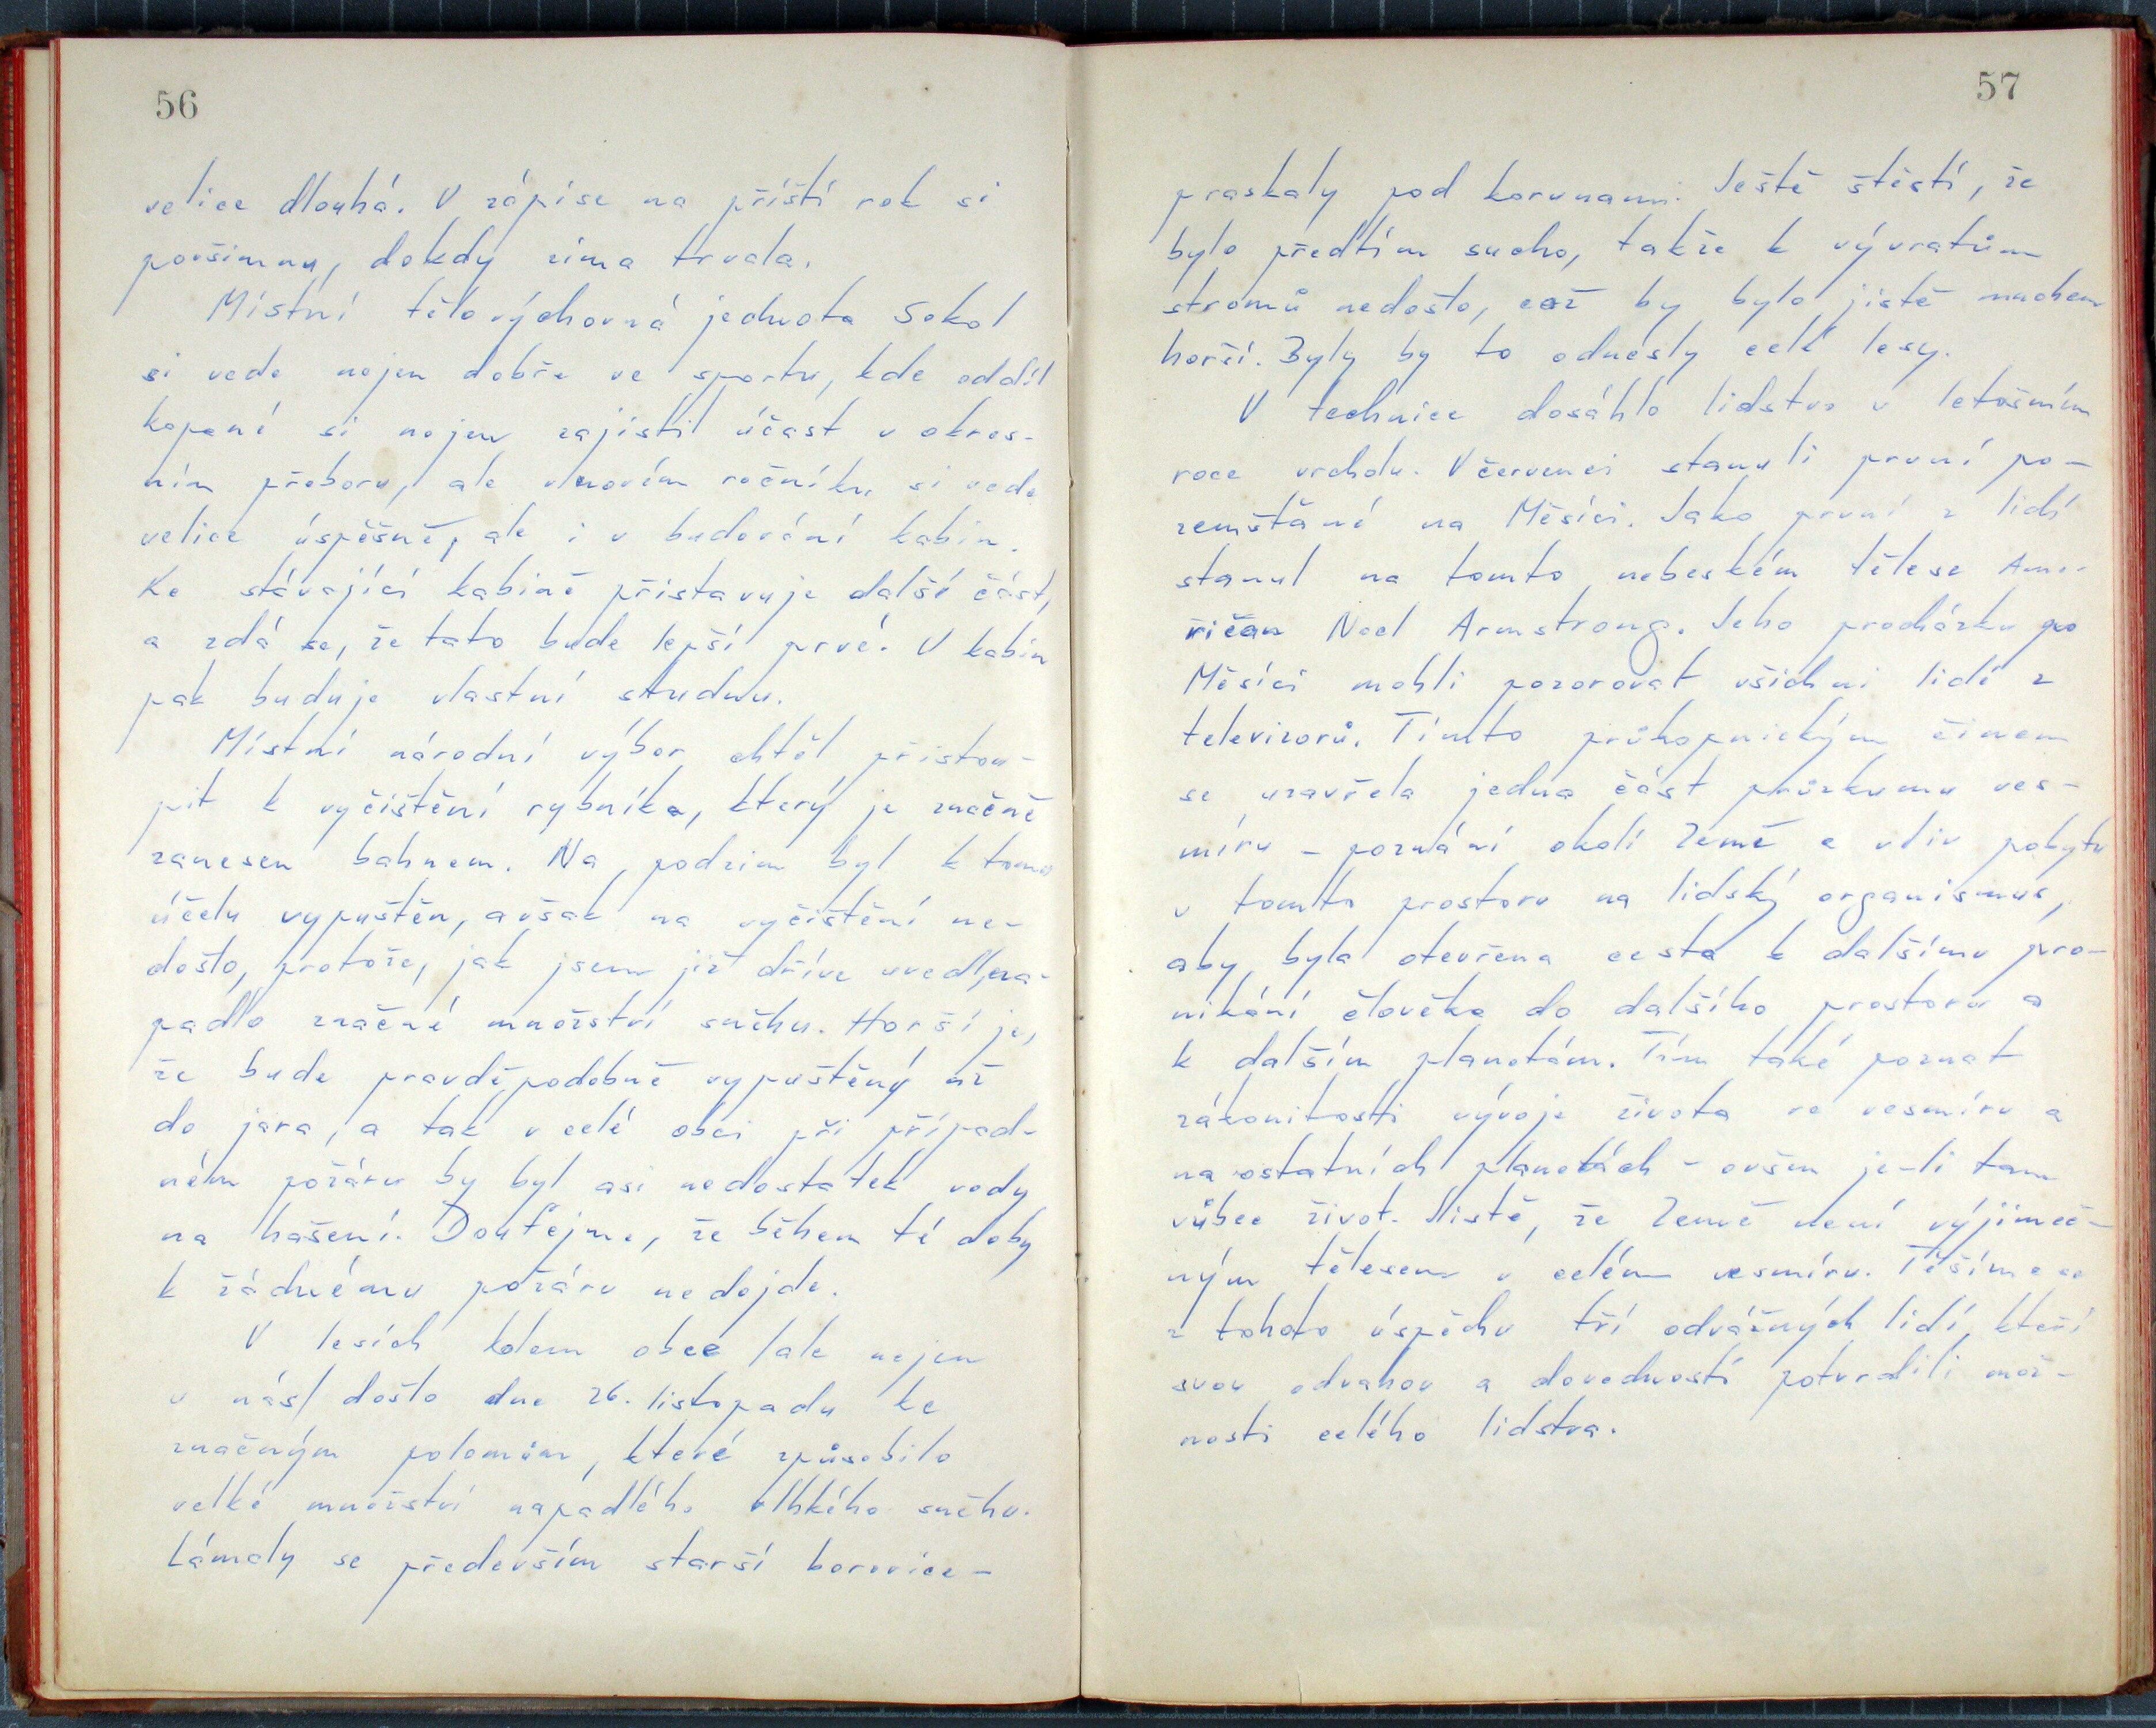 56
velice dlouhá. V zápise na příští rok si
povšimnu, dokdy zima trvala.
Místní tělovýchovná jednota Sokol
si vede nejen dobře ve sportu, kde oddíl
kopané si nejen zajistil účast v okres-
ním přeboru, ale v novém ročníku si vede
velice úspěšně, ale i v budování kabin.
Ke stávající kabině přistavuje další část,
a zdá se, že tato bude lepší prvé. U kabin
pak buduje vlastní studnu.
Místní národní výbor chtěl přistou-
pit k vyčištění rybníka, který je značně
zanesen bahnem. Na podzim byl k tomu
účelu vypuštěn, avšak na vyčištění ne-
došlo, protože, jak jsem již dříve uvedl, na-
padlo značné množství sněhu. Horší je,
že bude pravděpodobně vypuštěný až
do jara, a tak v celé obci při případ-
ném požáru by byl asi nedostatek vody
na hašení. Doufejme, že během té doby
k žádnému požáru nedojde.
V lesích kolem obce /ale nejen
u nás/ došlo dne 26. listopadu ke
značným polomům, které způsobilo
velké množství napadlého vlhkého sněhu.
Lámaly se především starší borovice -
57
praskaly pod korunami. Ještě štěstí, že
bylo předtím sucho, takže k vývratům
stromů nedošlo, což by bylo jistě mnohem
horší. Byly by to odnesly celé lesy.
V technice dosáhlo lidstvo v letošním
roce vrcholu. V červenci stanuli první po-
zemšťané na Měsíci. Jako první z lidí
stanul na tomto nebeském tělese Ame-
ričan Neel Armstrong. Jeho procházku po
Měsíci mohli pozorovat všichni lidé z
televizorů. Tímto průkopnickým činem
se uzavřela jedna část průzkumu ves-
míru - poznání okolí Země a vliv pobytu
v tomto prostoru na lidský organismus,
aby byla otevřena cesta k dalšímu pro-
nikání člověka do dalšího prostoru a
k dalším planetám. Tím také poznat
zákonitosti vývoje života ve vesmíru a
na ostatních planetách - ovšem je-li tam
vůbec život. Jistě, že Země není výjimeč-
ným tělesem v celém vesmíru. Těšíme se
z tohoto úspěchu tří odvážných lidí, kteří
svou odvahou a dovedností potvrdili mož-
nosti celého lidstva.